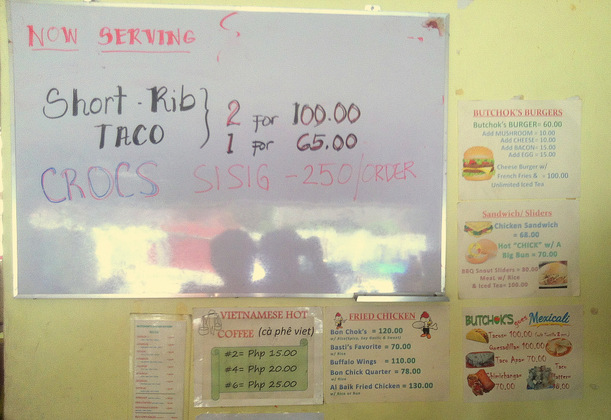 NOW SERVING
Short-Rib TACO } 2 for 100.00
1 for 65.00
CROCS SISIG - 250/ORDER
BUTCHOK'S BURGERS
Butchok's BURGER= 60.00
Add MUSHROOM = 10.00
Add CHEESE= 10.00
Add BACON= 15.00
Add EGG = 15.00
Cheese Burger w/
French Fries & = 100.00
Unlimited Iced Tea
Sandwich/ Sliders
Chicken Sandwich
= 68.00
Hot "CHICK" w/ A
Big Bun = 70.00
BBQ Sliders = 80.00
Meat w/ Rice
& Iced Tea= 100.00
VIETNAMESE HOT
COFFEE (cà phê viet)
#2= Php 15.00
#4= Php 20.00
#6= Php 25.00
FRIED CHICKEN
Bon Chok's = 120.00
Basti's Favorite = 70.00
w/ Rice
Buffalo Wings = 110.00
Bon Chick Quarter = 78.00
w/ Rice
Al Baik Fried Chicken = 130.00
BUTCHOK'S Mexicali
Tacos= 100.00
Quesadilla= 100.00
Taco Aps= 70.00
Chimichanga=
70.00